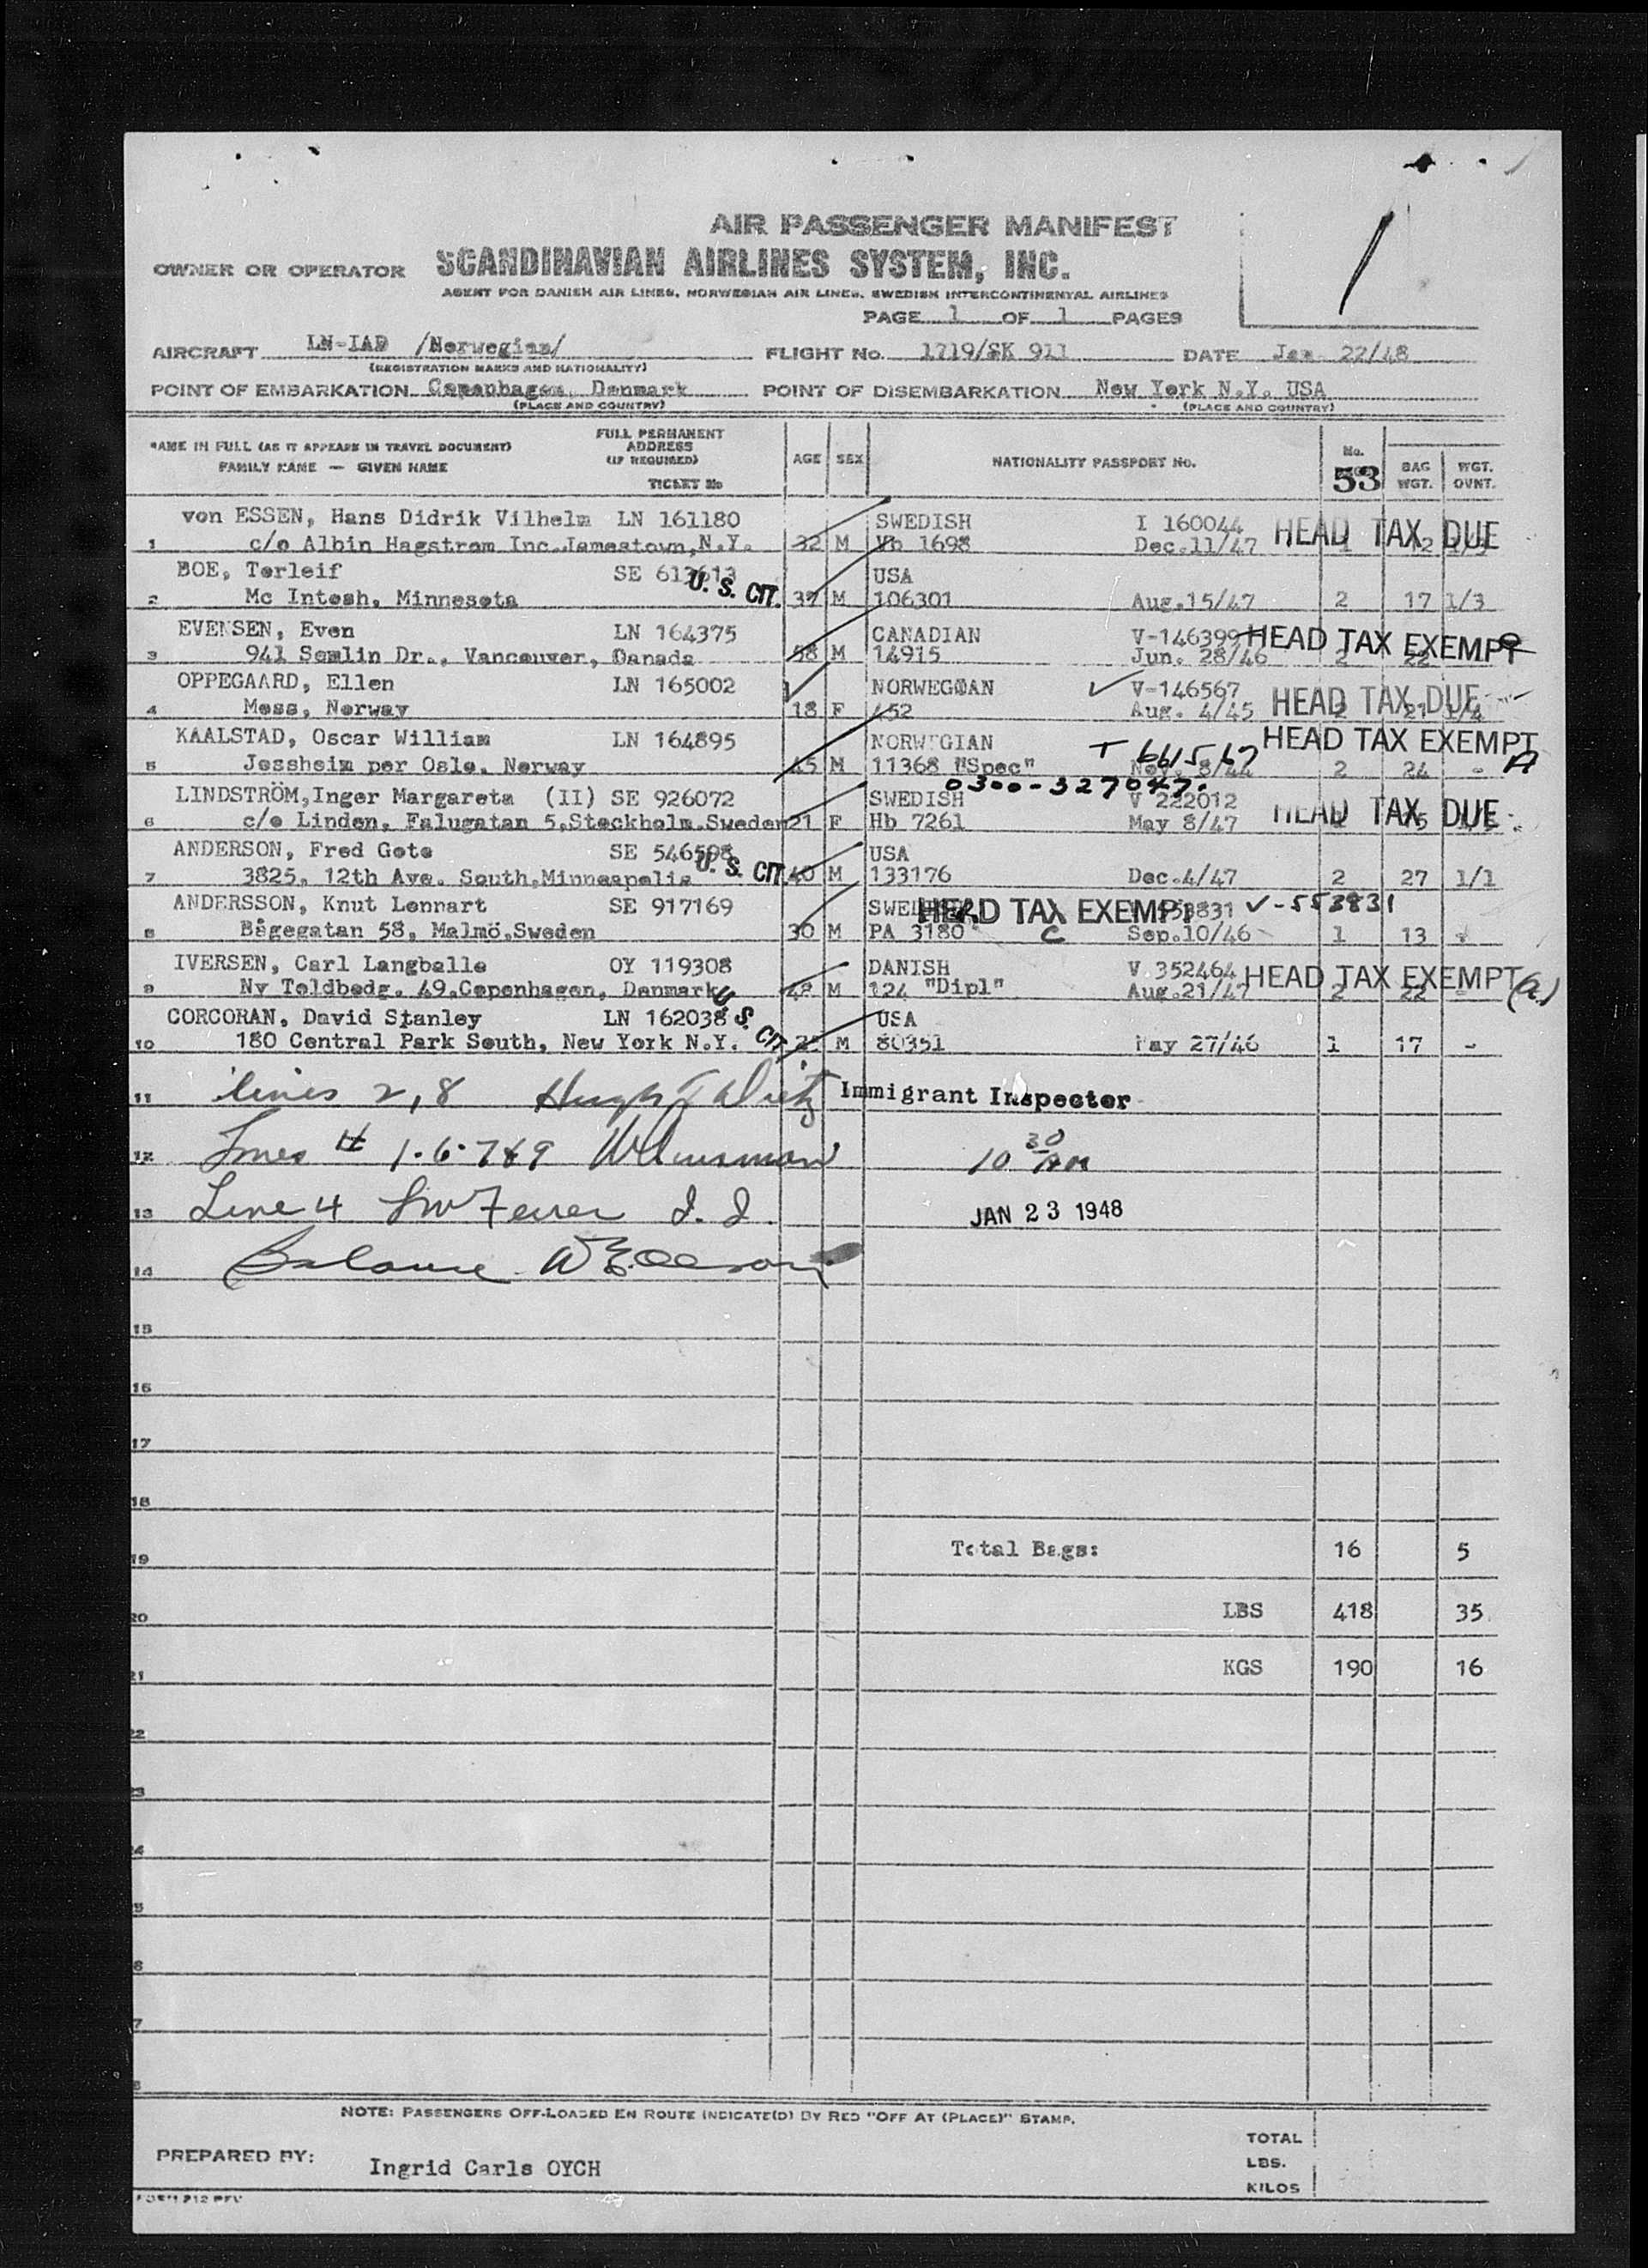 AIR PASSENGER MANIFEST
OWNER OR OPERATOR SCANDINAVIAN AIRLINES SYSTEM, INC.
AGENT FOR DANISH AIR LINES, NORWEGIAN AIR LINES, SWEDISH INTERCONTINENTAL AIRLINES
PAGE 1 OF 1 PAGES
/
AIRCRAFT LN-IAD /Norwegian/ FLIGHT No. 1719/SK 911 DATE Jan 22/48
(REGISTRATION MARKS AND NATIONALITY)
POINT OF EMBARKATION Copenhagen, Denmark POINT OF DISEMBARKATION New York N.Y. USA
(PLACE AND COUNTRY) (PLACE AND COUNTRY)
NAME IN FULL (AS IT APPEARS IN TRAVEL DOCUMENT) FULL PERMANENT ADDRESS (IF REQUIRED) AGE SEX NATIONALITY PASSPORT No. No. 53 BAG WGT. WGT. OVNT.
FAMILY NAME — GIVEN NAME TICKET No
von ESSEN, Hans Didrik Vilhelm LN 161180 SWEDISH I 160044 HEAD TAX DUE
1 c/o Albin Hagstrom Inc.Jamestown,N.Y. 32 M Vb 1698 Dec.11/47
BOE, Torleif SE 613613 U. S. CIT. USA
2 Mc Intosh, Minnesota 37 M 106301 Aug.15/47 2 17 1/3
EVENSEN, Even LN 164375 CANADIAN V-146399 HEAD TAX EXEMPT
3 941 Semlin Dr., Vancouver, Canada 58 M 14915 Jun. 28/46 2 22
OPPEGAARD, Ellen LN 165002 NORWEGIAN V-146567 HEAD TAX DUE
4 Moss, Norway 18 F 452 Aug. 4/45 2 21 1/4
KAALSTAD, Oscar William LN 164895 NORWEGIAN T 661567 HEAD TAX EXEMPT A
5 Jessheim per Oslo, Norway 45 M 11368 "Spec" Nov. 8/44 2 24 -
0300-327047.
LINDSTRÖM,Inger Margareta (II) SE 926072 SWEDISH V 222012 HEAD TAX DUE
6 c/o Linden, Falugatan 5,Stockholm.Sweden 21 F Hb 7261 May 8/47
ANDERSON, Fred Gote SE 546598 U. S. CIT USA
7 3825, 12th Ave. South,Minneapolis 40 M 133176 Dec.4/47 2 27 1/1
ANDERSSON, Knut Lennart SE 917169 SWEDISH HEAD TAX EXEMPT V-553831
8 Bågegatan 58, Malmö,Sweden 30 M PA 3180 C Sep.10/46 1 13
IVERSEN, Carl Langballe OY 119308 DANISH V 352464 HEAD TAX EXEMPT (a)
9 Ny Toldbodg. 49,Copenhagen, Denmark 48 M 124 "Dipl" Aug.21/47 2 22 -
CORCORAN, David Stanley LN 162038 U. S. CIT USA
10 180 Central Park South, New York N.Y. M 80351 May 27/46 1 17 -
11 lines 2,8 Hugh J Dietz Immigrant Inspector
12 Lines # 1.6.7&9 10 30 AM
13 Line 4 I.I. JAN 23 1948
14 Balance
15
16
17
18
19 Total Bags: 16 5
20 LBS 418 35
21 KGS 190 16
22
23
4
5
6
7
8
NOTE: PASSENGERS OFF-LOADED EN ROUTE INDICATE(D) BY RED "OFF AT (PLACE)" STAMP.
PREPARED BY: Ingrid Carls OYCH
TOTAL
LBS.
KILOS
FORM 212 REV